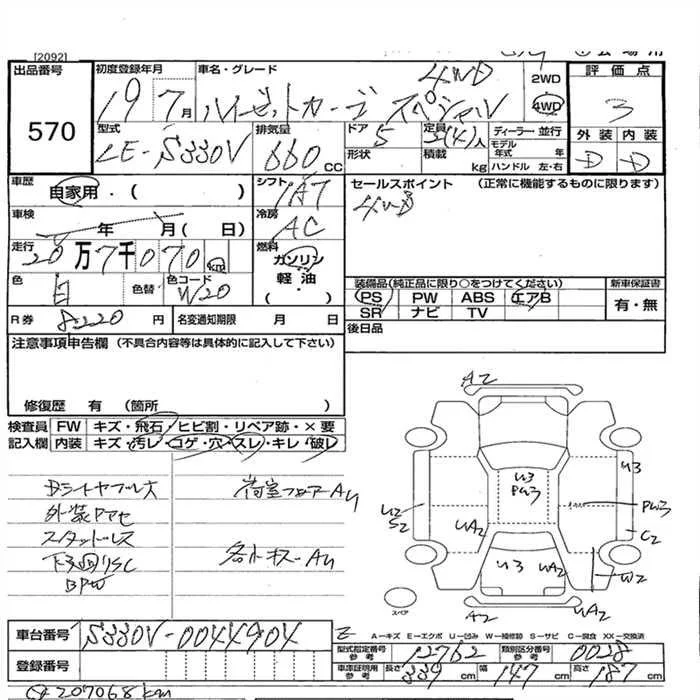 [2092]
出品番号
570
初度登録年月
19 7月
車名・グレード
4WD
ハイゼットカーゴ スペシャル
2WD
4WD
評価点
3
外装 内装
D D
型式
LE-S330V
排気量
660cc
ドア
5
形状
定員
人
積載
kg
ディーラー・並行
モデル年式 年
ハンドル 左・右
車歴
自家用・(
)
シフト
冷房
AC
車検
年 月( 日)
走行
20万7千070km
燃料
ガソリン
軽油
( )
色
白
色替
色コード
W20
R券
8220円
名変通知期限 月 日
セールスポイント (正常に機能するものに限ります)
4WD
装備品(純正品に限り○をつけてください)
新車保証書
PS PW ABS エアB
SR ナビ TV
有・無
後日品
注意事項申告欄(不具合内容等は具体的に記入して下さい)
修復歴 有 (箇所 )
検査員記入欄
FW キズ・飛石・ヒビ割・リペア跡・×要
内装 キズ・汚レ・コゲ・穴・スレ・キレ・破レ
外装
スタッドレス
下回りSC
BPW
荷室フロアーAU
A2
U3
PW3
U3
PW3
U2
S2
UA2
C2
U3
UA2
W2
A2
UA2
スペア
車台番号
S330V-0044904
登録番号
A-キズ E-エクボ U-凹み W-補修跡 S-サビ C-腐食 XX-交換済
型式指定番号 参考
12762
類別区分番号 参考
0028
車庫証明用 参考
長さ 339cm
幅 147cm
高さ 187cm
207068km